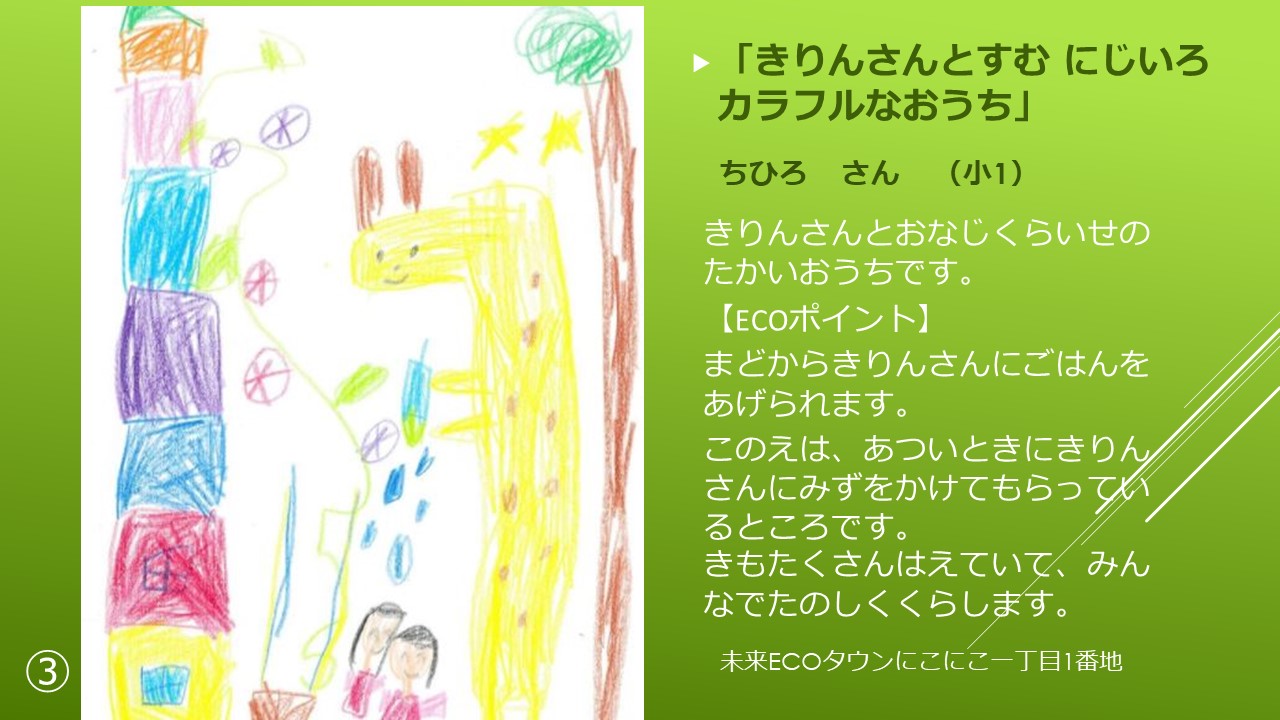 「きりんさんとすむ にじいろ
カラフルなおうち」
ちひろ　さん　（小1）
きりんさんとおなじくらいせの
たかいおうちです。
【ECOポイント】
まどからきりんさんにごはんを
あげられます。
このえは、あついときにきりん
さんにみずをかけてもらってい
るところです。
きもたくさんはえていて、みん
なでたのしくくらします。
未来ECOタウンにこにこ一丁目1番地
③